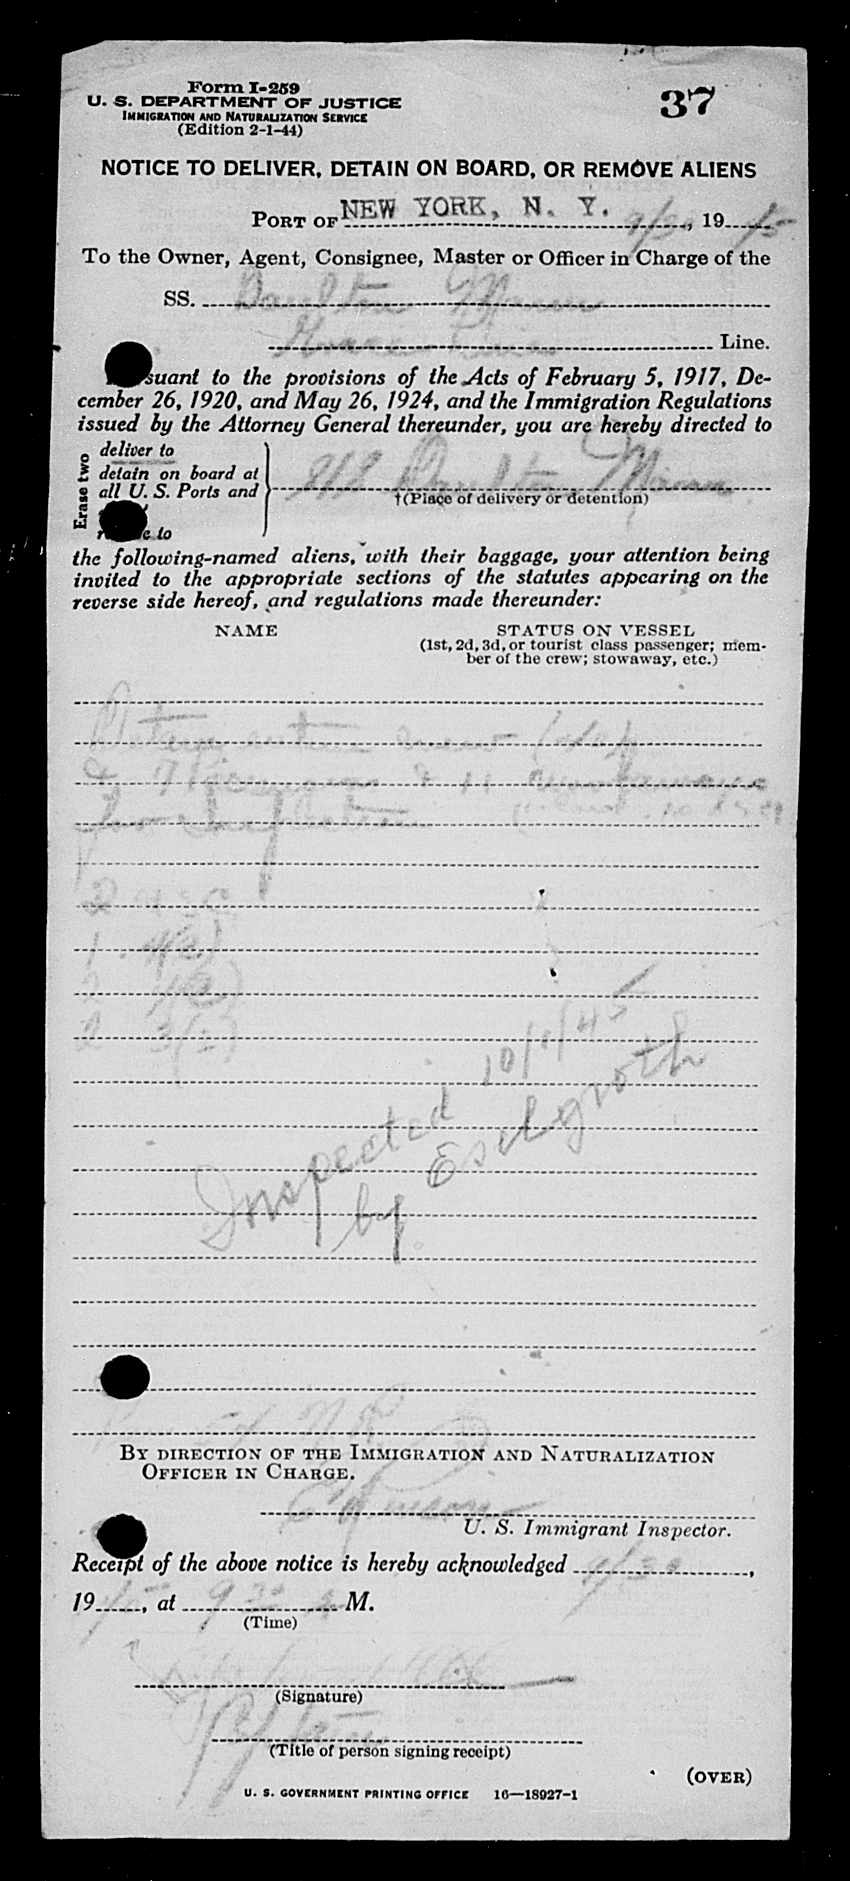 Form I-259
U. S. DEPARTMENT OF JUSTICE
IMMIGRATION AND NATURALIZATION SERVICE
(Edition 2-1-44)
37
NOTICE TO DELIVER, DETAIN ON BOARD, OR REMOVE ALIENS
PORT OF NEW YORK, N. Y. 9/30, 1945
To the Owner, Agent, Consignee, Master or Officer in Charge of the
SS. Daulton Mann
Grace Line Line.
suant to the provisions of the Acts of February 5, 1917, De-
cember 26, 1920, and May 26, 1924, and the Immigration Regulations
issued by the Attorney General thereunder, you are hereby directed to
Erase two
deliver to
detain on board at
all U. S. Ports and
e to
SS Daulton Mann
†(Place of delivery or detention)
the following-named aliens, with their baggage, your attention being
invited to the appropriate sections of the statutes appearing on the
reverse side hereof, and regulations made thereunder:
NAME
STATUS ON VESSEL
(1st, 2d, 3d, or tourist class passenger; mem-
ber of the crew; stowaway, etc.)
Detain entire crew
&
for inspection
Inspected 10/1/45
by Eselgroth
BY DIRECTION OF THE IMMIGRATION AND NATURALIZATION
OFFICER IN CHARGE.
U. S. Immigrant Inspector.
Receipt of the above notice is hereby acknowledged 9/30,
1945, at 9 30 M.
(Time)
(Signature)
(Title of person signing receipt)
(OVER)
U. S. GOVERNMENT PRINTING OFFICE 16—18927-1